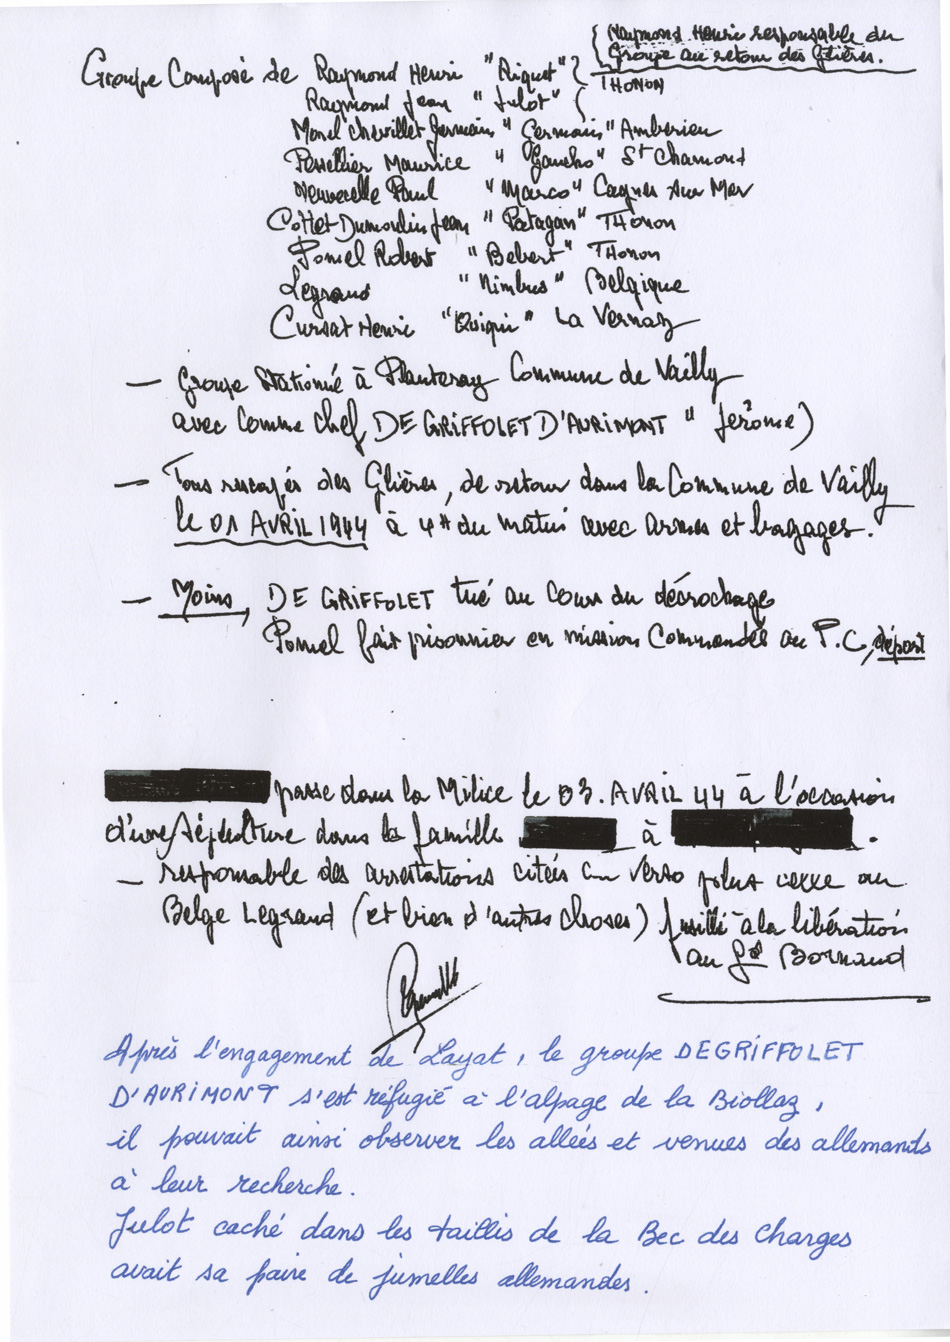 Raymond Henri responsable du
Groupe au retour des Glières.
Groupe Composé de Raymond Henri "Riquet"
THONON
Raymond Jean "Julot"
Morel Chevillet Germain "Germain" Amberieu
Pessellier Maurice "Gaucho" St Chamond
Neuvecelle Paul "Marco" Cagnes Sur Mer
Cottet Dumoulin Jean "Patagan" THonon
Pomel Robert "Bebert" THonon
Legrand "Nimbus" Belgique
Cursat Henri "Quiqui" La Vernaz
— Groupe Stationné à Planteray Commune de Vailly
avec comme chef DE GRIFFOLET D'AURIMONT "Jerôme)
— Tous rescapés des Glières, de retour dans la Commune de Vailly
le 01 AVRIL 1944 à 4H du matin avec armes et bagages.
— Moins, DE GRIFFOLET tué au cour du décrochage
Pomel fait prisonnier en mission Commandée au P.C, déport
passe dans la Milice le 03. AVRIL 44 à l'occasion
d'une sépulture dans la famille à .
— responsable des arrestations citées au verso plus celle du
Belge Legrand (et bien d'autres choses) fusillé à la libération
au Gd Bornand
Après l'engagement de Layat, le groupe DEGRIFFOLET
D'AURIMONT s'est réfugié à l'alpage de la Biollaz,
il pouvait ainsi observer les allées et venues des allemands
à leur recherche.
Julot caché dans les taillis de la Bec des Charges
avait sa paire de jumelles allemandes.